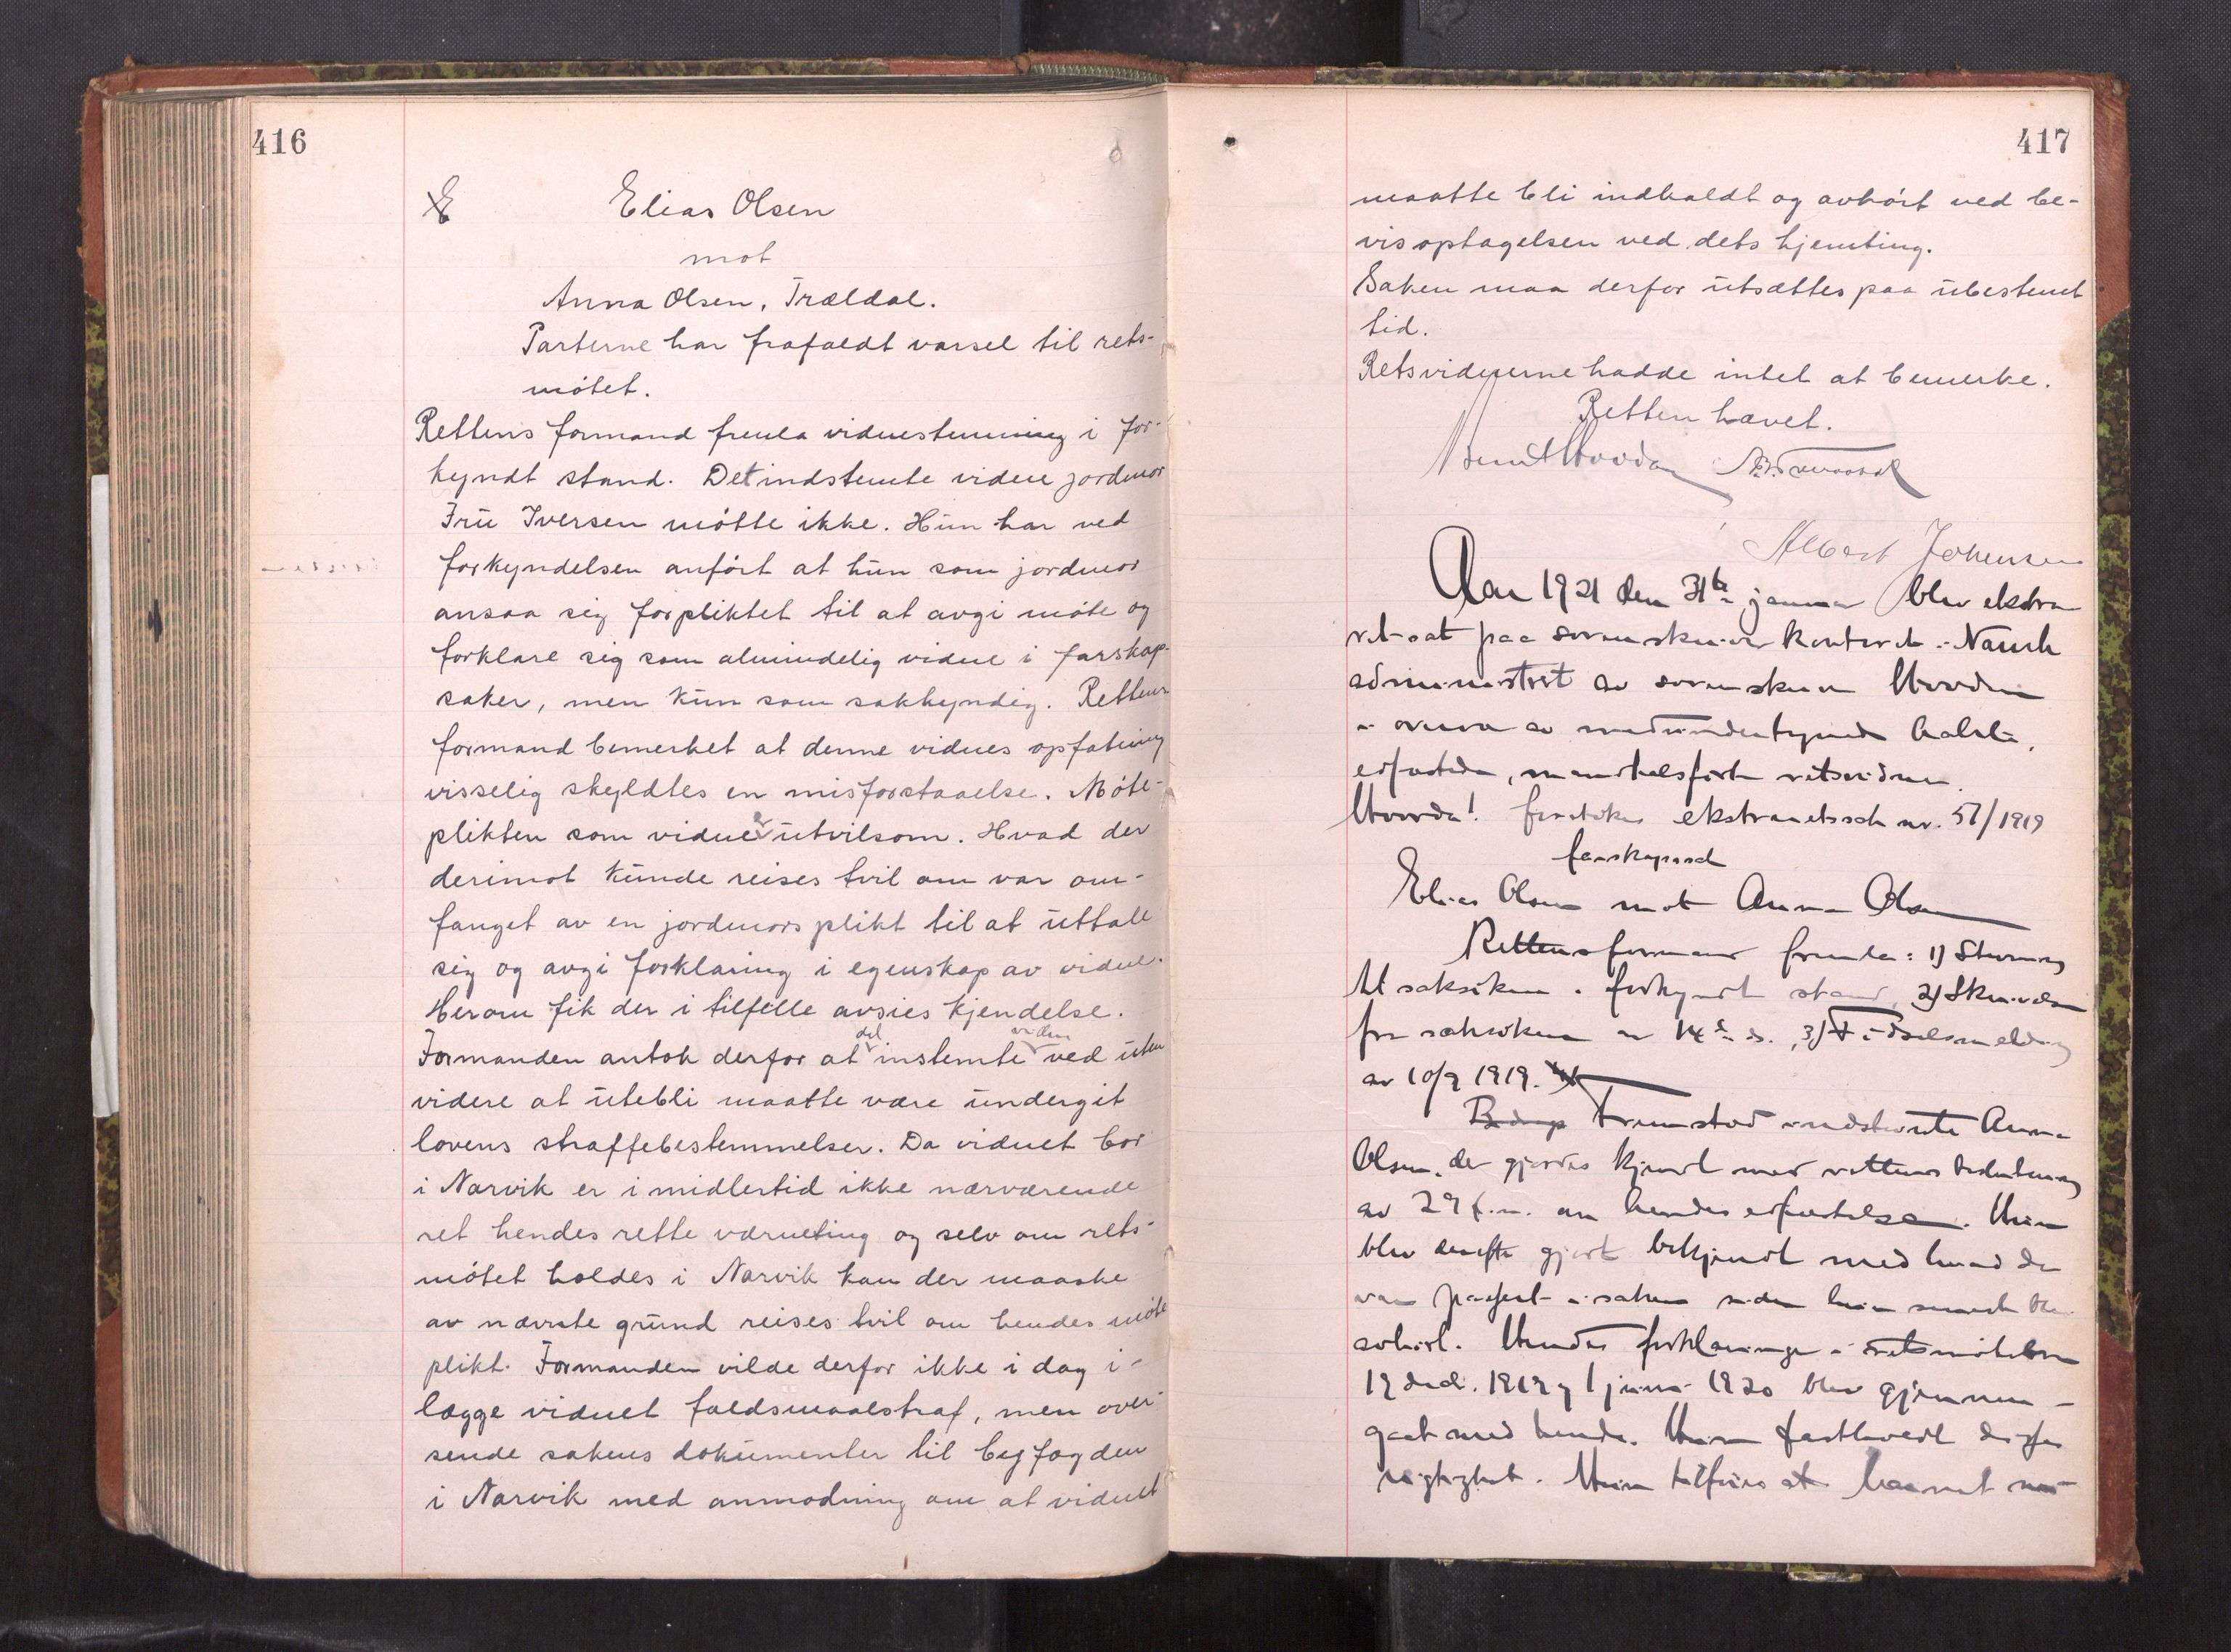 416
Elias Olsen
mot
Anna Olsen, Trældal.
Parterne har frafaldt varsel til rets-
møtet.
Rettens formand fremla vidnestemning i for-
kyndt stand. Det indstemte vidne jordmor
Fru Iversen møtte ikke. Hun har ved
forkyndelsen anført at hun som jordmor
ansaa sig forpliktet til at avgi møte og
forklare sig som almindelig vidne i farskap-
saker, men kun som sakkyndig. Rettens
formand bemerket at denne vidnes opfatning
visselig skyldtes en misforstaaelse. Møte-
plikten som vidne er utvilsom. Hvad der
derimot kunde reises tvil om var om-
fanget av en jordmors plikt til at uttale
sig og avgi forklaring i egenskap av vidne.
Herom fik der i tilfelle avsies kjendelse.
Formanden antok derfor at det instemte vidne ved uten
videre at utebli maatte være undergit
lovens straffebestemmelser. Da vidnet bor
i Narvik er imidlertid ikke nærværende
ret hendes rette værneting og selv om rets-
møtet holdes i Narvik kan der maaske
av nævnte grund reises tvil om hendes møte
plikt. Formanden vilde derfor ikke i dag i-
lægge vidnet faldsmaalstraf, men over-
sende sakens dokumenter til byfogden
i Narvik med anmodning om at vidnet
417
maatte bli indkaldt og avhørt ved be-
visoptagelsen ved dets hjemting.
Saken maa derfor utsættes paa ubestemt
tid.
Retsvidnerne hadde intet at bemerke.
Retten hævet.
Albert Johensen
Aar 1921 den 31te januar blev ekstra
ret sat paa sorenskriver kontoret i Narvik
administrert av sorenskriver Hovdan
i overvær av medundertegnede
edfæstede, mandtalsførte retsvidner.
Hvorda! foretokes ekstraretssak nr. 57/1919
farskapssak
Elias Olsen mot Anna Olsen
Rettens formand fremla: 1) Stevning
til saksøkeren i forkyndt stand, 2) Skrivelse
fra saksøkeren av 14de ds., 3) Fødselsmelding
av 10/9 1919.
Fremstod indstevnte Anna
Olsen, der gjordes kjendt med rettens beslutning
av 29 f.m. om hendes edfæstelse. Hun
blev derefter gjort bekjendt med hvad der
var passert i saken siden hun senest blev
avhørt. Hendes forklaringer i retsmøterne
19 decb. 1919 og 1 juni 1920 blev gjennem-
gaat med hende. Hun fastholdt deres
rigtighet. Hun tilføies at barnet